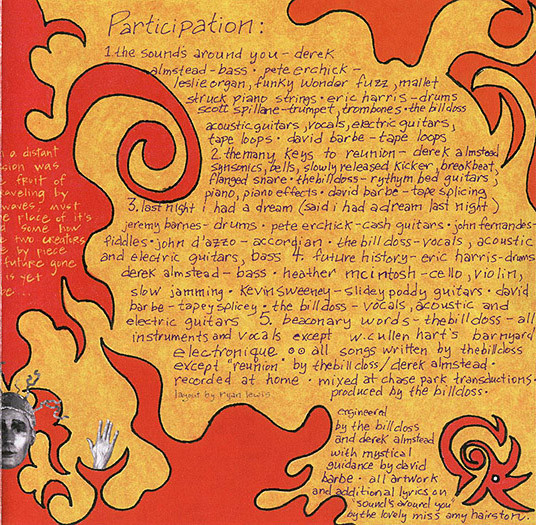 Participation:
1. the sounds around you - derek
almstead - bass • pete erchick -
leslie organ, funky wonder fuzz, mallet
struck piano strings • eric harris - drums
scott spillane - trumpet, trombones • the bill doss
acoustic guitars, vocals, electric guitars,
tape loops • david barbe - tape loops
2. the many keys to reunion - derek almstead
synsonics, bells, slowly released kicker, breakbeat,
flanged snare • the bill doss - rythym bed guitars,
piano, piano effects • david barbe - tape splicing
3. last night i had a dream (said i had a dream last night)
jeremy barnes - drums • pete erchick - cash guitars • john fernandes -
fiddles • john d'azzo - accordian • the bill doss - vocals, acoustic
and electric guitars, bass 4. future history - eric harris - drums
derek almstead - bass • heather mcintosh - cello, violin,
slow jamming • kevin sweeney - slidey poddy guitars • david
barbe - tapey splicey • the bill doss - vocals, acoustic and
electric guitars 5. beaconary words - the bill doss - all
instruments and vocals except w. cullen hart's barnyard
electronique •• all songs written by the bill doss
except "reunion" by the bill doss/derek almstead •
recorded at home • mixed at chase park transductions •
layout by ryan lewis
produced by the bill doss •
engineered
by the bill doss
and derek almstead
with mystical
guidance by david
barbe • all artwork
and additional lyrics on
"sounds around you"
by the lovely miss amy hairston.
a distant
sion was
fruit of
raveling by
waves, must
e place of it's
some how
e two creators
by piece
future gone
is yet
be ..